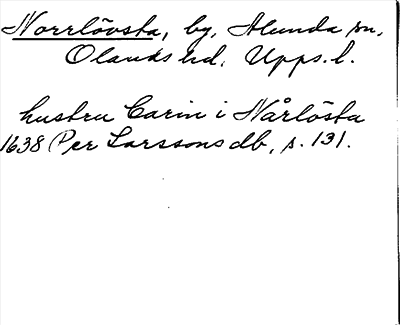 Norrlövsta, by, Alunda sn,
Olands hd, Upps. l.
hustru Carin i Nårlösta
1638 Per Larssons db, s. 131.